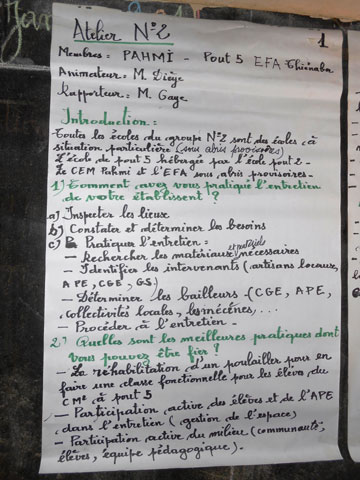 Atelier N°2
1
Membres : PAHMI - Pout 5 EFA Thiénaba
Animateur : M. Dièye
Rapporteur : M. Gaye
Introduction :
Toutes les écoles du groupe N°2 sont des écoles à
situation particulière (sous abris provisoires)
L'école de pout 5 hébergé par l'école pout 2 -
Le CEM Pahmi et l'EFA sous abris provisoires -
1) Comment avez vous pratiqué l'entretien
de votre établissent ?
a) Inspecter les lieuse
b) Constater et déterminer les besoins
c) Pratiquer l'entretien :
- Rechercher les matériaux et matériels nécessaires
- Identifier les intervenants (artisans locaux,
APE, CGE, GS)
- Déterminer les bailleurs - (CGE, APE,
collectivités locales, les mécènes, ...
- Procéder à l'entretien -
2) Quelles sont les meilleures pratiques dont
vous pouvez être fier ?
- La réhabilitation d'un poulailler pour en
faire une classe fonctionnelle pour les élèves du
CM² à pout 5
- Participation active des élèves et de l'APE
dans l'entretien (gestion de l'espace)
- Participation active du milieu (communauté,
élèves, équipe pédagogique).